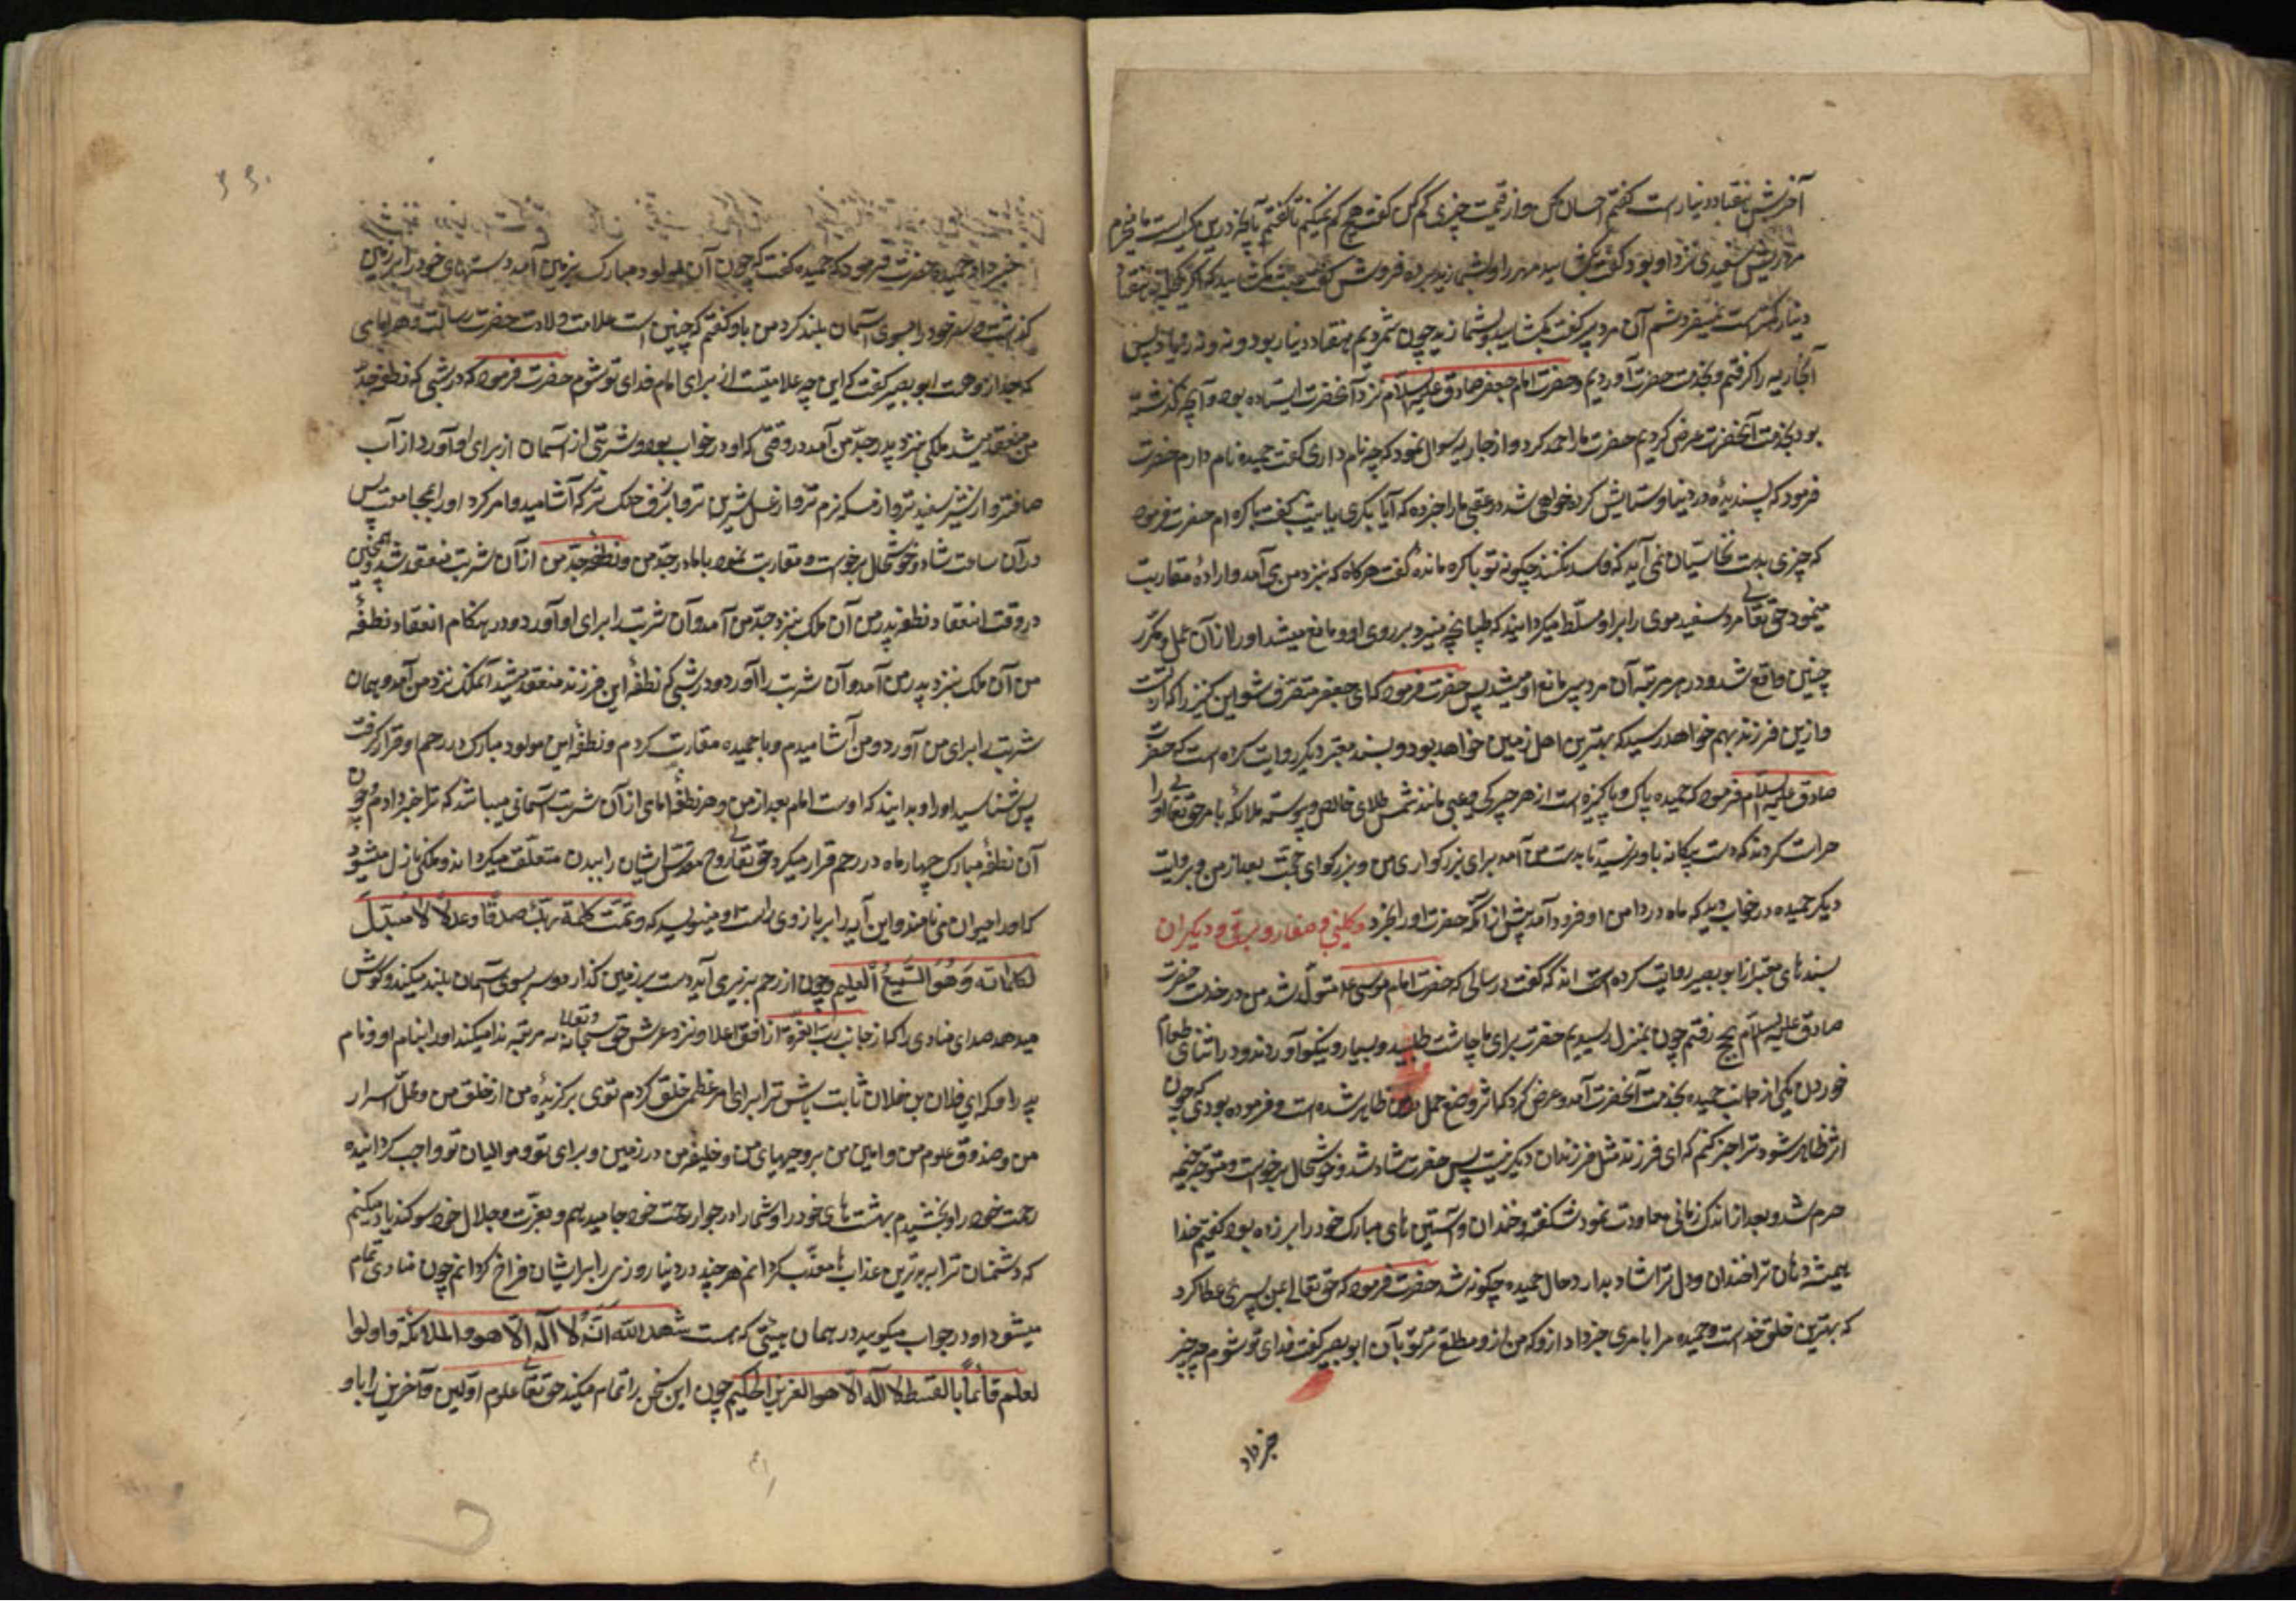 آخرش هفتاد دینار است کفتم احسان کن و از قیمت چیزی کم کن کفت هیچ کم نمیکنم تا کفتم بآنچه درین کیسه است ما میخریم
مرد ریش سفیدی نزد او بود کفت بکشایید مهر را و بشمارید برده فروش کفت عبث مکشایید که اکر یکحبه از هفتاد
دینار کمتر است نمیفروشم آن مرد پیر کفت بکشایید و بشمارید چون شمردیم هفتاد دینار بود و نه زیاد پس
آنجاریه را کرفتم و بخدمت حضرت آوردیم و حضرت امام جعفر صادق علیه السلام نزد آنحضرت ایستاده بود و آنچه کذشته
بود بخدمت آنحضرت عرض کردیم حضرت ما را حمد کرد و از جاریه سوال نمود که چه نام داری کفت حمیده نام دارم حضرت
فرمود که پسندیدهٔ در دنیا و ستایش کرده خواهی شد در عقبی ما را خبر ده که آیا بکری یا ثیب کفت باکره ام حضرت فرمود
که چیزی بدست نخاسیان نمی آید که فاسد نکنند چکونه تو باکره ماندهٔ کفت هرکاه که بنزد من می آمد و ارادهٔ مقاربت
مینمود حق تعالی مرد سفید موی را بر او مسلط میکردانید که طپانچه میزد بر روی او و مانع میشد او را از آن عمل و مکرر
چنین واقع شد و در هر مرتبه آن مرد پیر مانع او میشد پس حضرت فرمود که ای جعفر متصرف شو این کنیز را که از تست
و ازین فرزندی بهم خواهد رسید که بهترین اهل زمین خواهد بود و بسند معتبر دیکر روایت کرده است که حضرت
صادق علیه السلام فرمود که حمیده پاک و پاکیزه است از هر چرکی و عیبی مانند شمش طلای خالص و پیوسته ملائکه بامر حق تعالی او را
حراست کردند که دست بیکانه باو نرسید تا بدست من آمد برای بزرکواری من و بزرکوای حجت بعد از من و بروایت
دیکر حمیده در خواب دید که ماه در دامن او فرود آمد پیش از آنکه حضرت او را بخرد و کلینی و صفار و برقی و دیکران
بسند های معتبر از ابو بصیر روایت کرده است اند که کفت در سالی که حضرت امام موسی ع متولد شد من در خدمت حضرت
صادق علیه السلام بحج رفتم چون بمنزل رسیدیم حضرت برای ما چاشت طلبید و بسیار و نیکو آوردند و در اثنای طعام
خوردن یکی از جانب حمیده بخدمت آنحضرت آمد و عرض کرد که اثر وضع حمل در من ظاهر شده است و فرموده بودی که چون
اثر ظاهر شود ترا خبر کنم که ای فرزند مثل فرزندان دیکر نیست پس حضرت شاد شد و خوشحال برخواست و متوجه خیمه
حرم شد و بعد از اندک زمانی معاودت نمود شکفته و خندان و آستین های مبارک خود را بر زده بود کفتیم خدا
همیشه دهان ترا خندان و دل ترا شاد بدارد حال حمیده چکونه شد حضرت فرمود که حق تعالی بمن پسری عطا کرد
که بهترین خلق خداست و حمیده مرا بامری خبر داد ازو که من ازو مطلع تر بودم بآن ابو بصیر کفت فدای تو شوم چه چیز
خبر داد
خبر داد حمیده حضرت فرمود که حمیده کفت که چون آن مولود مبارک بزمین آمد دستهای خود را بر زمین
کذاشت و سر خود را بسوی آسمان بلند کرد من باو کفتم که چنین است علامت ولادت حضرت رسالت و هر امامی
که بعد از وهست ابو بصیر کفت که این چه علامتیست از برای امام فدای تو شوم حضرت فرمود که در شبی که نطفه جد
من منعقد میشد ملکی بنزد پدر جد من آمد در وقتی که او در خواب بود و شربتی از آسمان از برای او آورد از آب
صافتر و از شیر سفید تر و از مسکه نرم تر و از عسل شیرین تر و از برف خنک تر که آشامید و امر کرد او را بمجامعت پس
در آن ساعت شاد و خوشحال برخواست و مقاربت نمود با مادر جد من و نطفه جد من از آن شربت منعقد شد و همچنین
در وقت انعقاد نطفه پدر من آن ملک بنزد جد من آمد و آن شربت را برای او آورد و در هنکام انعقاد نطفه
من آن ملک بنزد پدر من آمد و آن شربت را آورد و در شبی که نطفهٔ این فرزند منعقد میشد آنملک نزد من آمد و همان
شربت را برای من آورد و من آشامیدم و با حمیده مقاربت کردم و نطفهٔ این مولود مبارک در رحم او قرار کرفت
پس بشناسید او را و بدانید که اوست امام بعد از من و هر نطفهٔ امامی از آن شربت آسمانی میباشد که ترا خبر دادم و چون
آن نطفهٔ مبارک چهار ماه در رحم قرار میکرد حق تعالی روح مقدس ایشان را ببدن متعلق میکرداند و ملکی نازل میشود
که او را حیوان می نامند و این آیه را بر بازوی راست او مینویسد که وتمت کلمة ربک صدقا وعدلا لا مبدل
لکلماته وَهُوَ السَّمِیعُ العَلیم و چون از رحم بزیر می آید دست بر زمین کذارد و سر بسوی آسمان بلند میکند و کوش
میدهد صدای منادی را که از جانب رب العزة از افق اعلا و نزد عرش حق سبحانه و تعالی سه مرتبه ندا میکند او را بنام او و نام
پدر او که ای فلان بن فلان ثابت باش ترا برای امر عظمی خلق کردم توی برکزیدهٔ من از خلق من و محل اسرار
من و صندوق علوم من و امین من بر وحیهای من و خلیفه من در زمین و برای تو و موالیان تو واجب کردانیده
رحمت خود را و بخشیدم بهشت های خود را و شما را در جوار رحمت خود جا میدهم و بعزت و جلال خود سوکند یاد میکنم
که دشمنان ترا ببدترین عذاب ها معذب کردانم هر چند در دنیا روزی را بر ایشان فراخ کردانم چون منادی تمام
میشود او در جواب میکوید در همان هیئتی که هست شهد الله انه لا اله الا هو والملائکة و اولوا
لعلم قائماً بالقسط لا اله الا هو العزیز الحکیم چون این سخن را تمام میکند حق تعالی علوم اولین و آخرین را باو